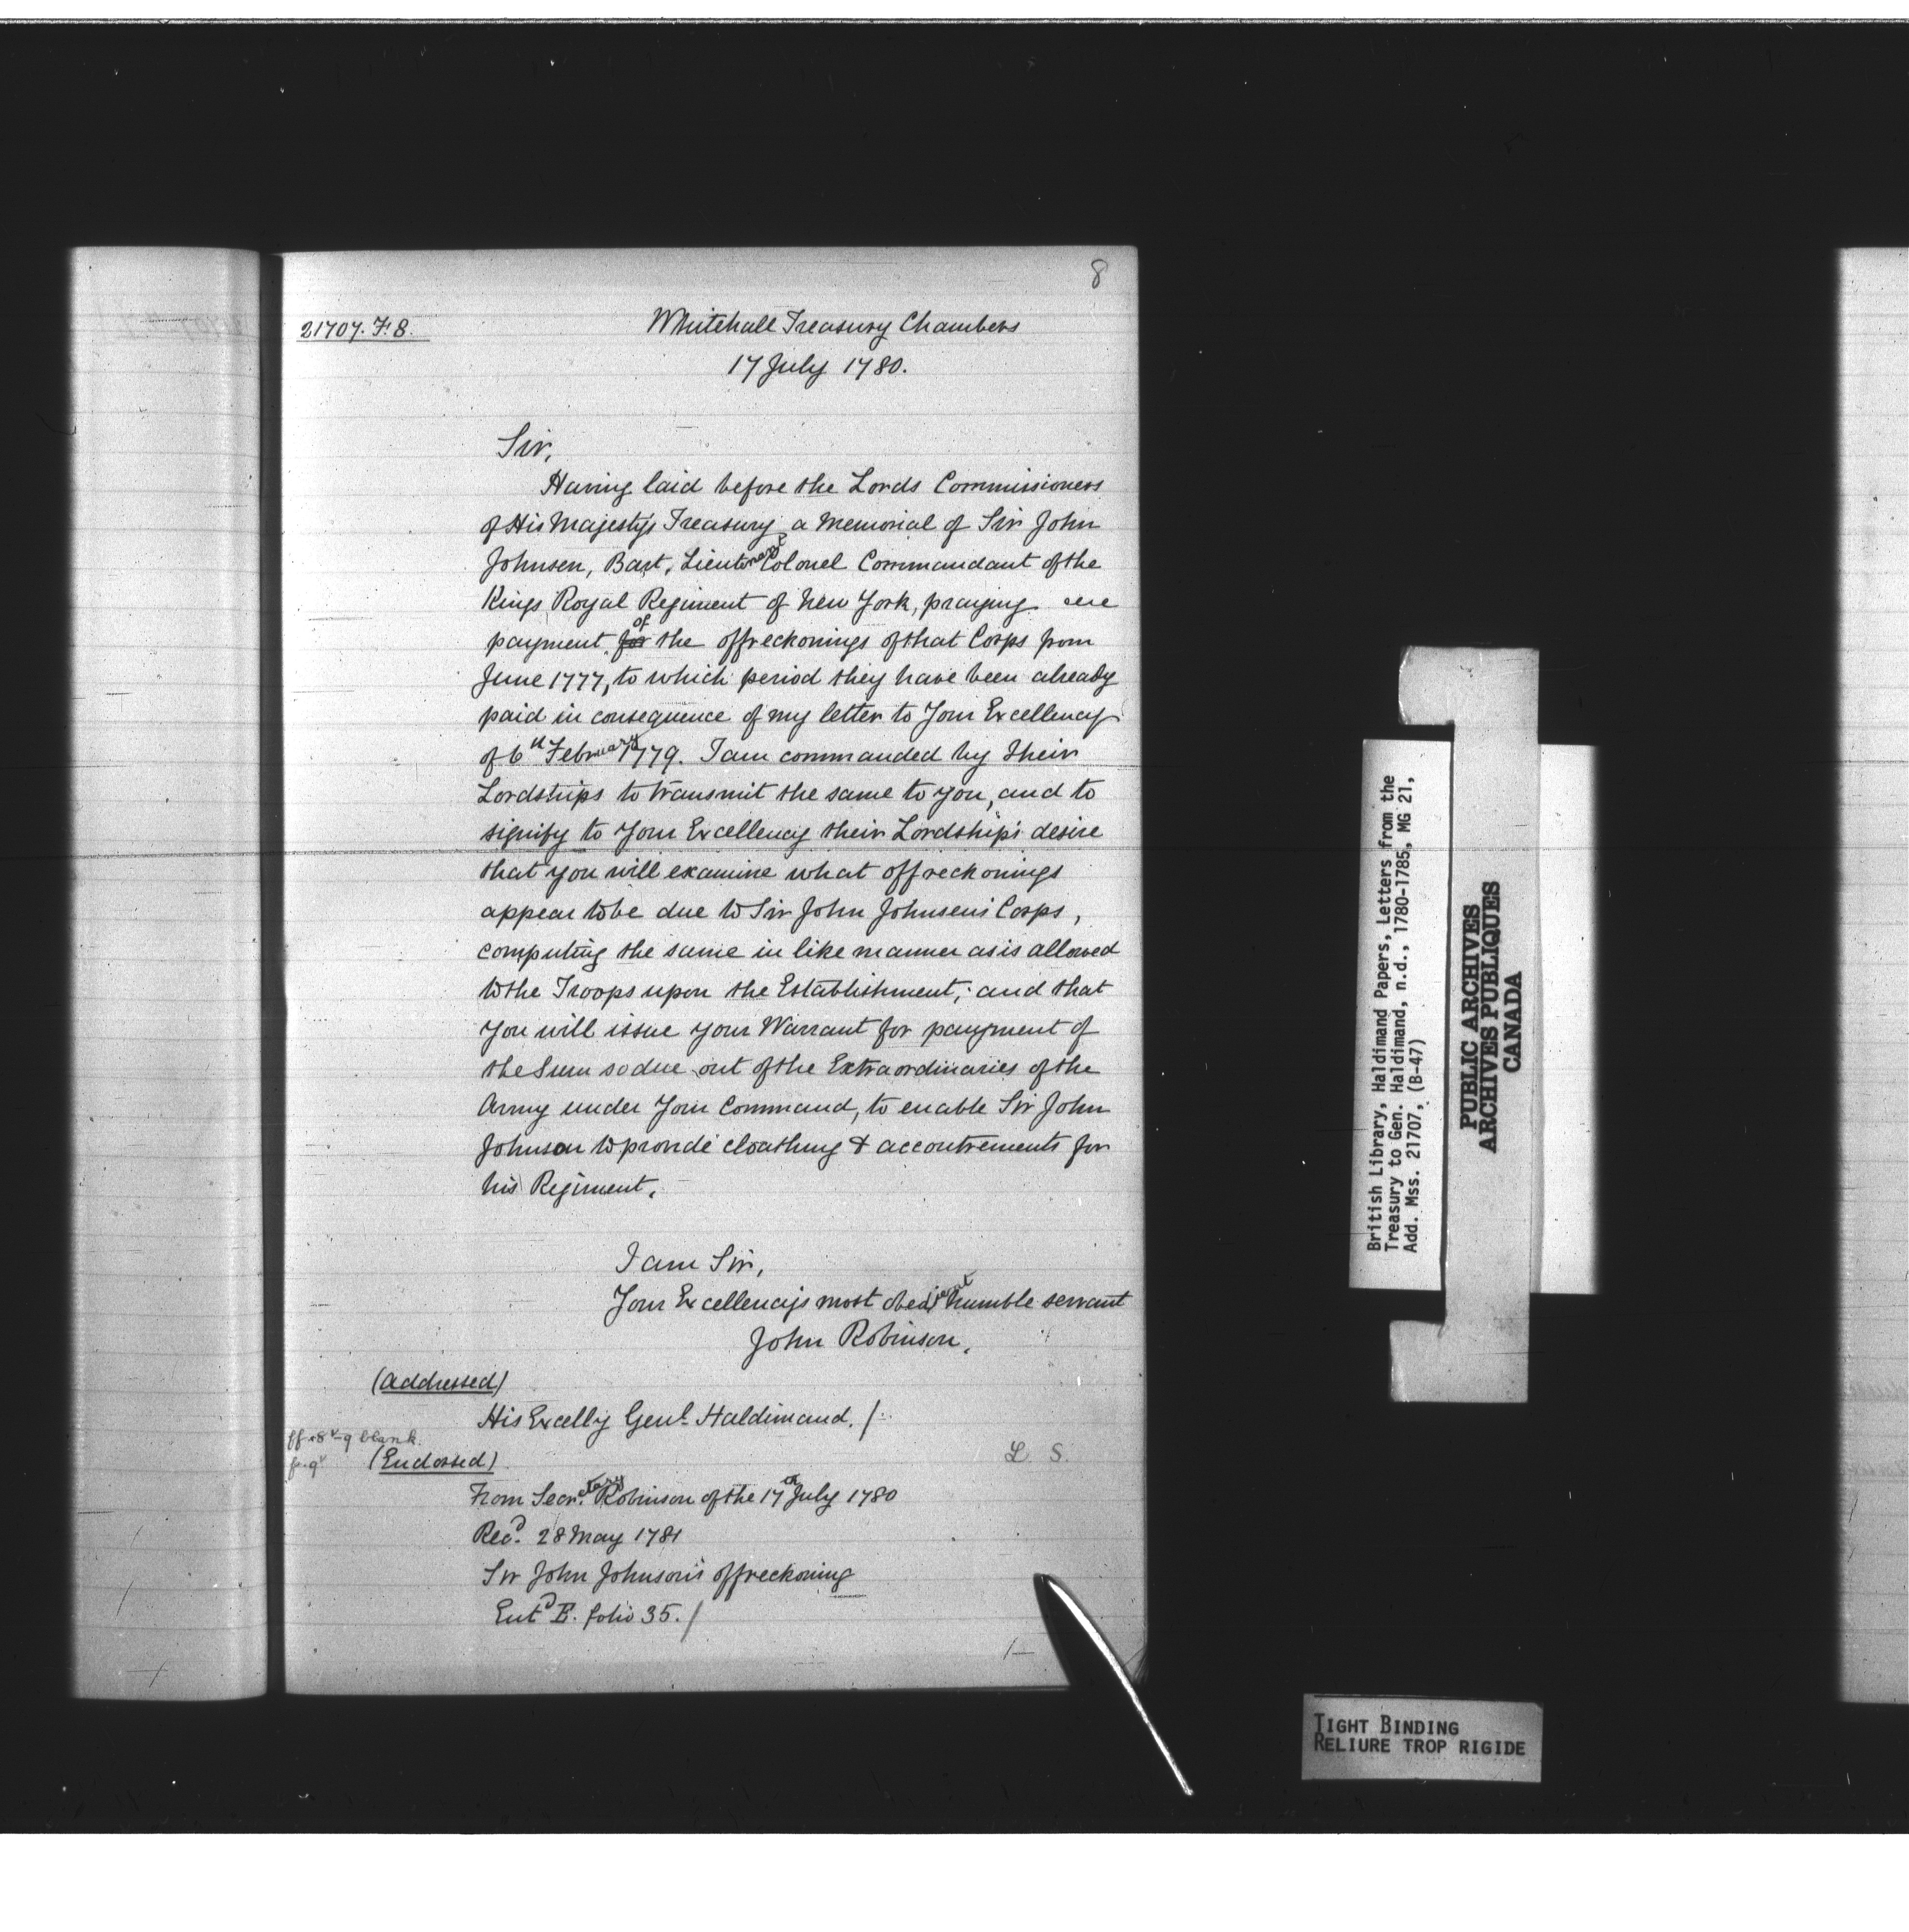 8
21707. F. 8.
Whitehall Treasury Chambers
17 July 1780.
Sir,
Having laid before the Lords Commissioners
of His Majesty's Treasury a Memorial of Sir John
Johnsen, Bart, Lieutenant Colonel Commandant of the
Kings Royal Regiment of New York, praying
payment for of the offreckonings of that Corps from
June 1777, to which period they have been already
paid in consequence of my letter to Your Excellency
of 6th February 1779. I am commanded by their
Lordships to transmit the same to you, and to
signify to Your Excellency their Lordship's desire
that you will examine what offreckonings
appear to be due to Sir John Johnsen's Corps,
computing the same in like manner as is allowed
to the Troops upon the Establishment; and that
you will issue your Warrant for payment of
the Sum so due out of the Extraordinaries of the
Army under Your Command, to enable Sir John
Johnson to provide cloathing & accoutrements for
his Regiment.
I am Sir,
Your Excellency's most obedient humble servant
John Robinson.
(Addressed)
His Excelly Genl. Haldimand. /:
ff. 8v-9 blank.
f. 9v
(Endorsed)
L. S.
From Secretary Robinson of the 17th July 1780
Recd. 28 May 1781
Sir John Johnson's offreckoning
Entd E. folio 35. /
British Library, Haldimand Papers, Letters from the
Treasury to Gen. Haldimand, n.d., 1780-1785, MG 21,
Add. Mss. 21707, (B-47)
PUBLIC ARCHIVES
ARCHIVES PUBLIQUES
CANADA
TIGHT BINDING
RELIURE TROP RIGIDE